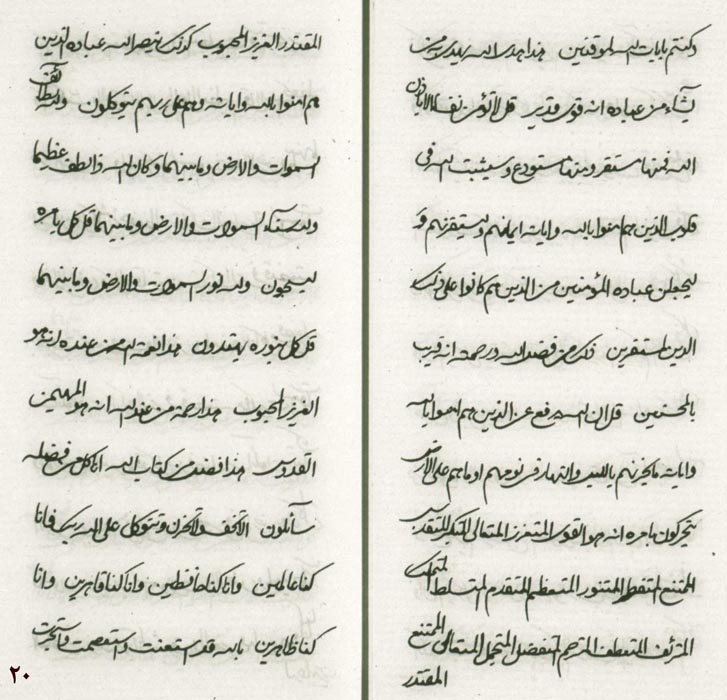 وكنتم بايات الله لموقنين هذا هدى الله يهدي به من
يشاء من عباده انه قوى قدير قل لا تؤمن نفسا الا باذن
الله فمنها مستقر ومنها مستودع وسيثبت الله في
قلوب الذين هم امنوا بالله واياته ايمانهم وليستقرنهم
ليجعلن عباده المؤمنين من الذين هم كانوا على ذلك
الدين لمستقرين ذلك من فضل الله ورحمته انه قريب
بالمحسنين قل ان الله يدفع عن الذين هم امنوا بالله
واياته ما يحزنهم بالليل والنهار في نومهم او ما هم على الارض
يتحركون بامره انه هو القوى المتعزز المتعالى المتكبر المتقدر
الممتنع المتنور المتعظم المتقدم المتسلط المتملك
المترئف المتعطف المترحم المتفضل المتجمل المتعالى الممتنع
المقتدر
المقتدر العزيز المحبوب كذلك ينصر الله عباده الذين
هم امنوا بالله واياته وهم على ربهم يتوكلون ولله
السموات والارض وما بينهما وكان الله ذا لطف عظيما
ولله سناء السموات والارض وما بينهما قل كل بامره
ليسبحون ولله نور السموات والارض وما بينهما
قل كل بنوره يهتدون هذا نعمة الله من عنده انه هو
العزيز المحبوب هذا رحمة من عند الله انه هو المهيمن
القدوس هذا فضل من كتاب الله انا كل من فضله
سائلون الا تخف ولا تحزن وتوكل على الله ربك فانا
كنا عالمين وانا كنا حافظين وانا كنا قاهرين وانا
كنا ظاهرين بالله قد استعنت واستعصمت واستجرت
٢٠